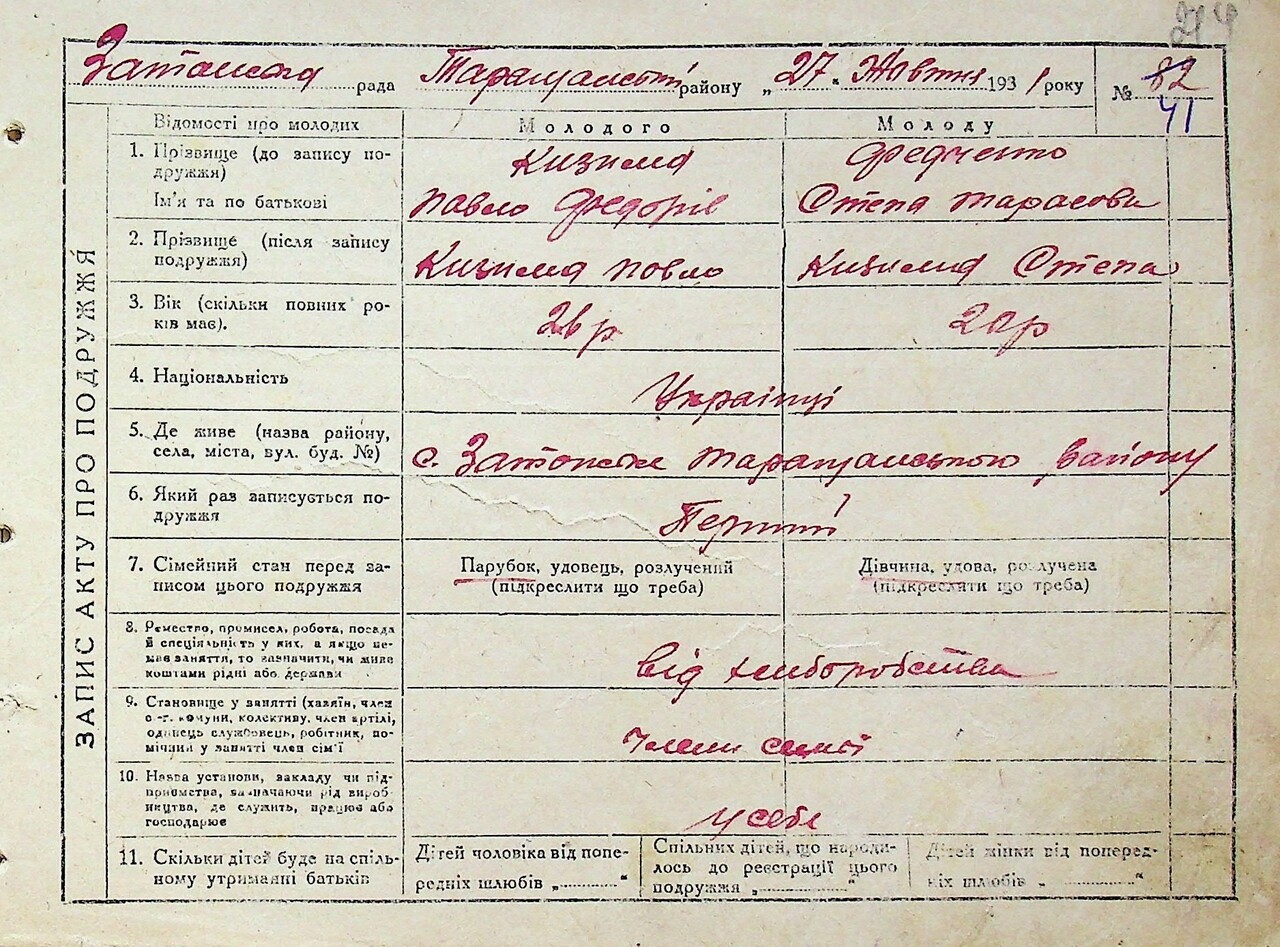 Затонская рада Таращанський району „27" Жовтня 1931 року № 82
41
ЗАПИС АКТУ ПРО ПОДРУЖЖЯ
Відомості про молодих Молодого Молоду
1. Прізвище (до запису по-
дружжя) Кизима Федченко
Ім'я та по батькові Павло Федорів Степа Тарасова
2. Прізвище (після запису
подружжя) Кизима Повло Кизима Степа
3. Вік (скільки повних ро-
ків має). р 20р
4. Національність Українці
5. Де живе (назва району,
села, міста, вул. буд. №) с. Затонське Таращанського району
6. Який раз записується по-
дружжя Перший
7. Сімейний стан перед за-
писом цього подружжя
Парубок, удовець, розлучений
(підкреслити що треба)
Дівчина, удова, розлучена
(підкресляти що треба)
8. Ремество, промисел, робота, посада
й спеціяльність у них, а якщо не-
має заняття, то зазначити, чи живе
коштами рідні або держави
від хлиборобства
9. Становище у занятті (хазяїн, член
с.-г. комуни, колективу, член артілі,
одинець службовець, робітник, по-
мічний у занятті член сім'ї
Члени семї
10. Назва установи, закладу чи під-
приємства, зазначаючи рід вироб-
ництва, де служить, працює або
господарює
у себе
11. Скільки дітей буде на спіль-
ному утриманні батьків
Дітей чоловіка від попе-
редніх шлюбів „............"
Спільних дітей, що народи-
лось до реєстрації цього
подружжя „............"
Дітей жінки від поперед-
ніх шлюбів „............"